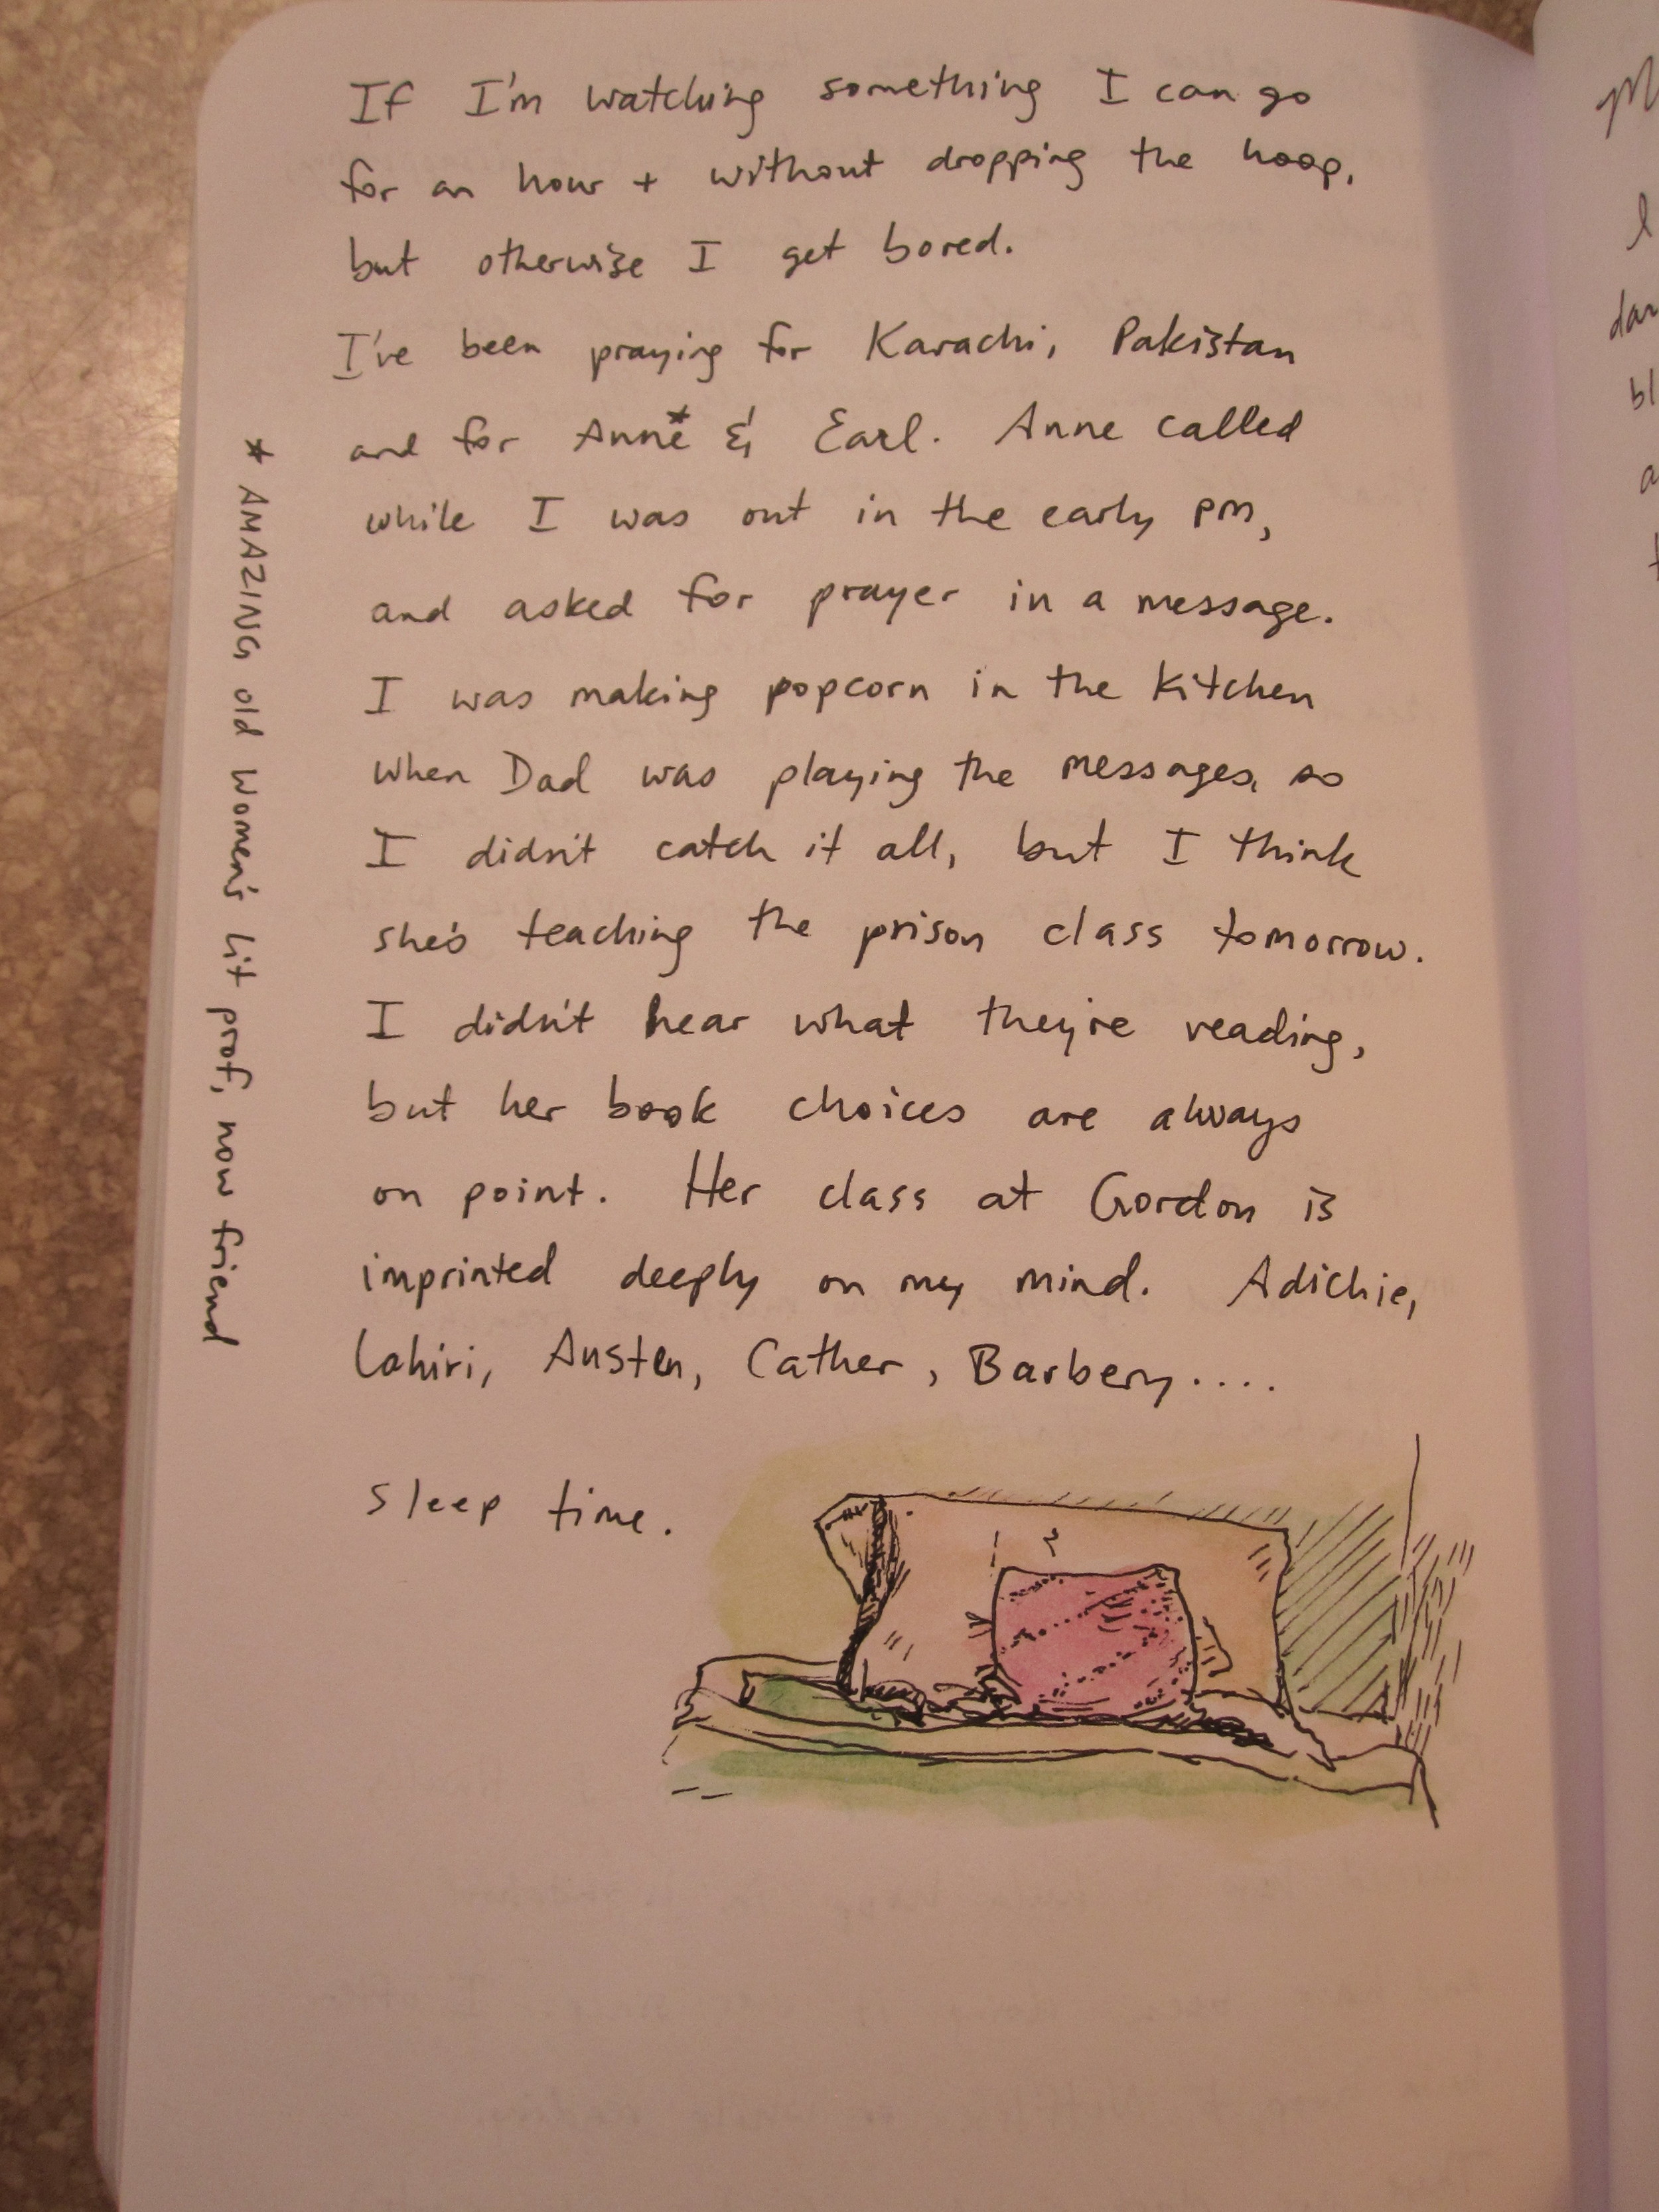 If I'm watching something I can go
for an hour + without dropping the hoop,
but otherwise I get bored.
I've been praying for Karachi, Pakistan
and for Anne* & Earl. Anne called
while I was out in the early pm,
and asked for prayer in a message.
I was making popcorn in the kitchen
when Dad was playing the messages, so
I didn't catch it all, but I think
she's teaching the prison class tomorrow.
I didn't hear what they're reading,
but her book choices are always
on point. Her class at Gordon is
imprinted deeply on my mind. Adichie,
Lahiri, Austen, Cather, Barbery....
Sleep time.
* AMAZING old Women's lit prof, now friend
dar
bl